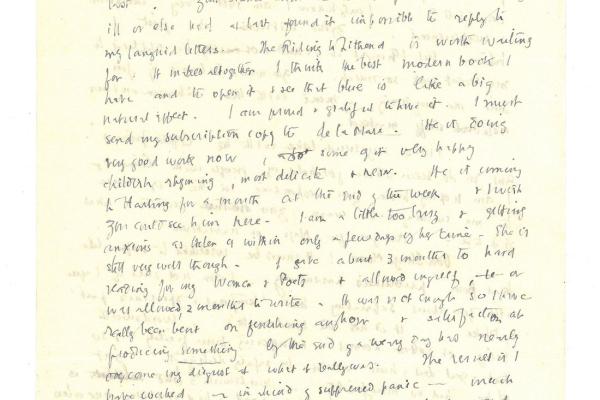 ill or else had at last found it impossible to reply to
my languid letters. The Riding to Lithend is worth waiting
for. It makes altogether I think the best modern book I
have and to open it & see that blue is like a big
natural effect. I am proud & grateful to have it. I must
send my subscription copy to de la Mare. He is doing
very good work now, some of it very happy
childish rhyming, most delicate & new. He is coming
to Harting for a month at the end of the week & I wish
you could see him here. I am a little too busy & getting
anxious as Helen is within only a few days of her time. She is
still very well though. I gave about 3 months to hard
reading for my Women & Poets & allowed myself, or
was allowed 2 months to write. It was not enough so I have
really been bent on finishing anyhow & satisfaction at
producing something by the end of a weary day has nearly
overcome my disgust at what it really was. The result is I
have worked in a kind of suppressed panic — much